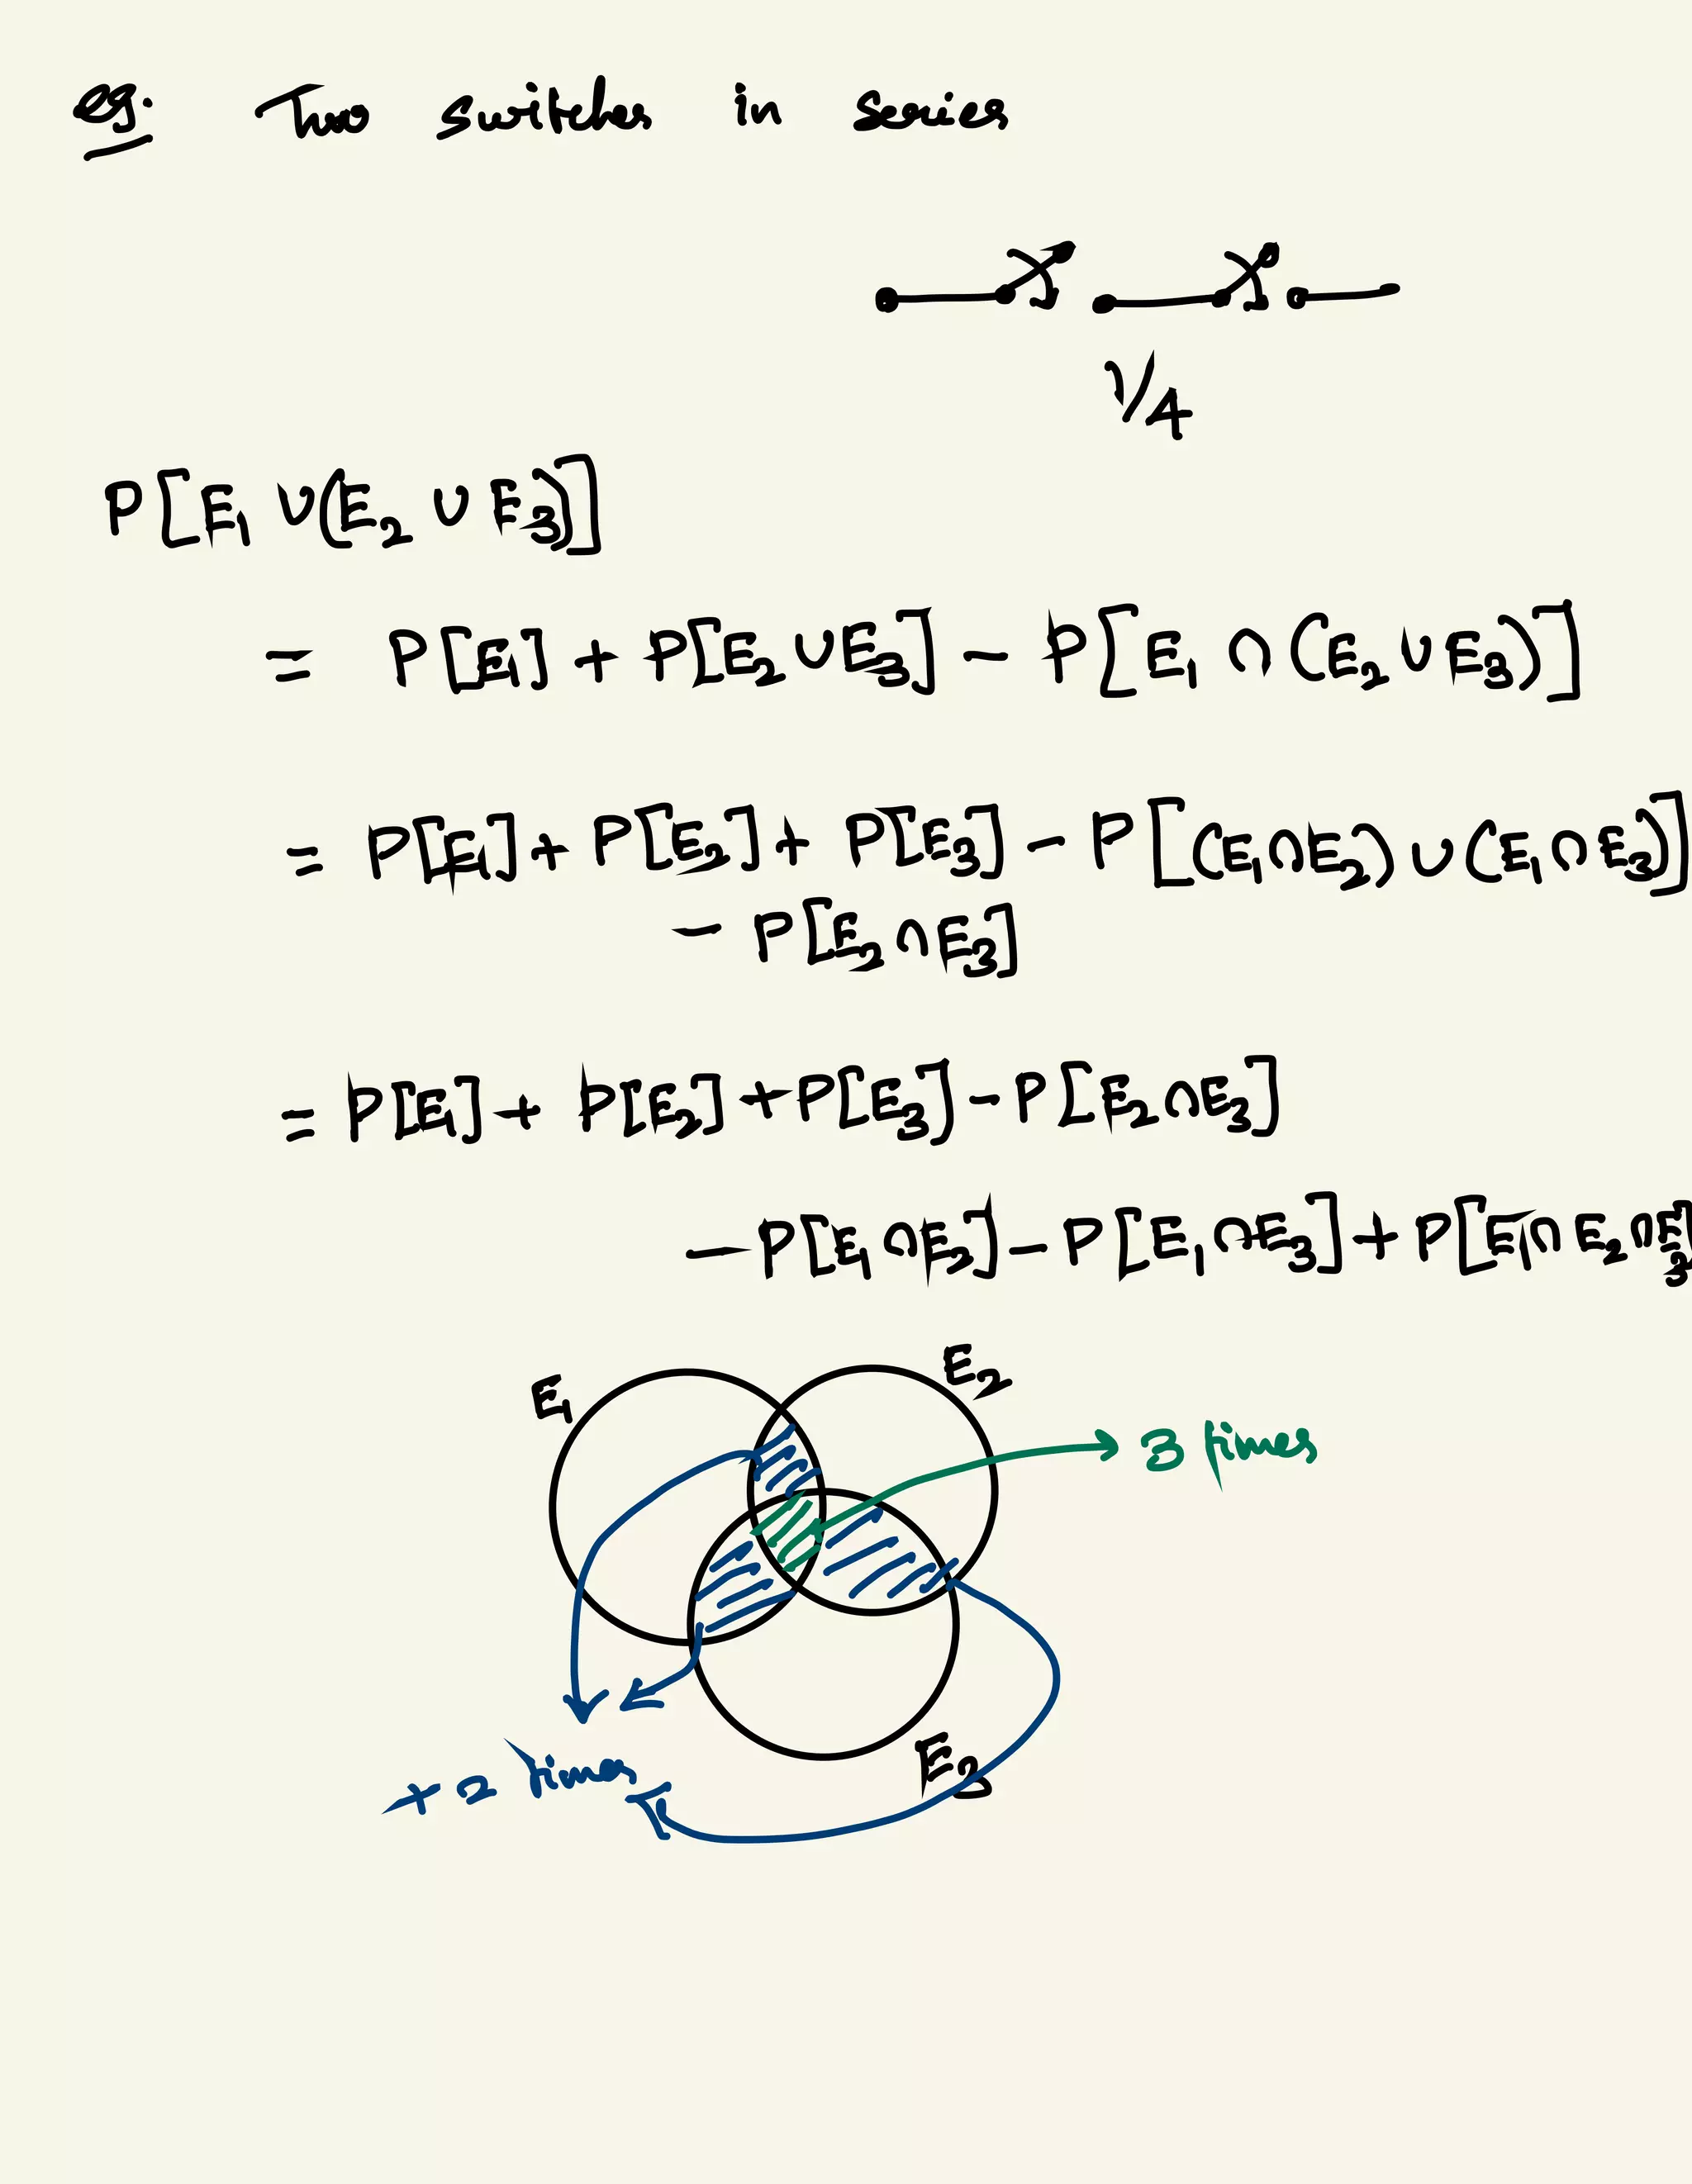 eg: Two switches in series
1/4
P[E₁ ∪ (E₂ ∪ E₃)]
= P[E₁] + P[E₂ ∪ E₃] − P[E₁ ∩ (E₂ ∪ E₃)]
= P[E₁] + P[E₂] + P[E₃] − P[(E₁∩E₂) ∪ (E₁∩E₃)]
− P[E₂ ∩ E₃]
= P[E₁] + P[E₂] + P[E₃] − P[E₂∩E₃]
− P[E₁∩E₂] − P[E₁∩E₃] + P[E₁∩E₂∩E₃]
E₂
E₁
3 times
E₃
+ 2 times